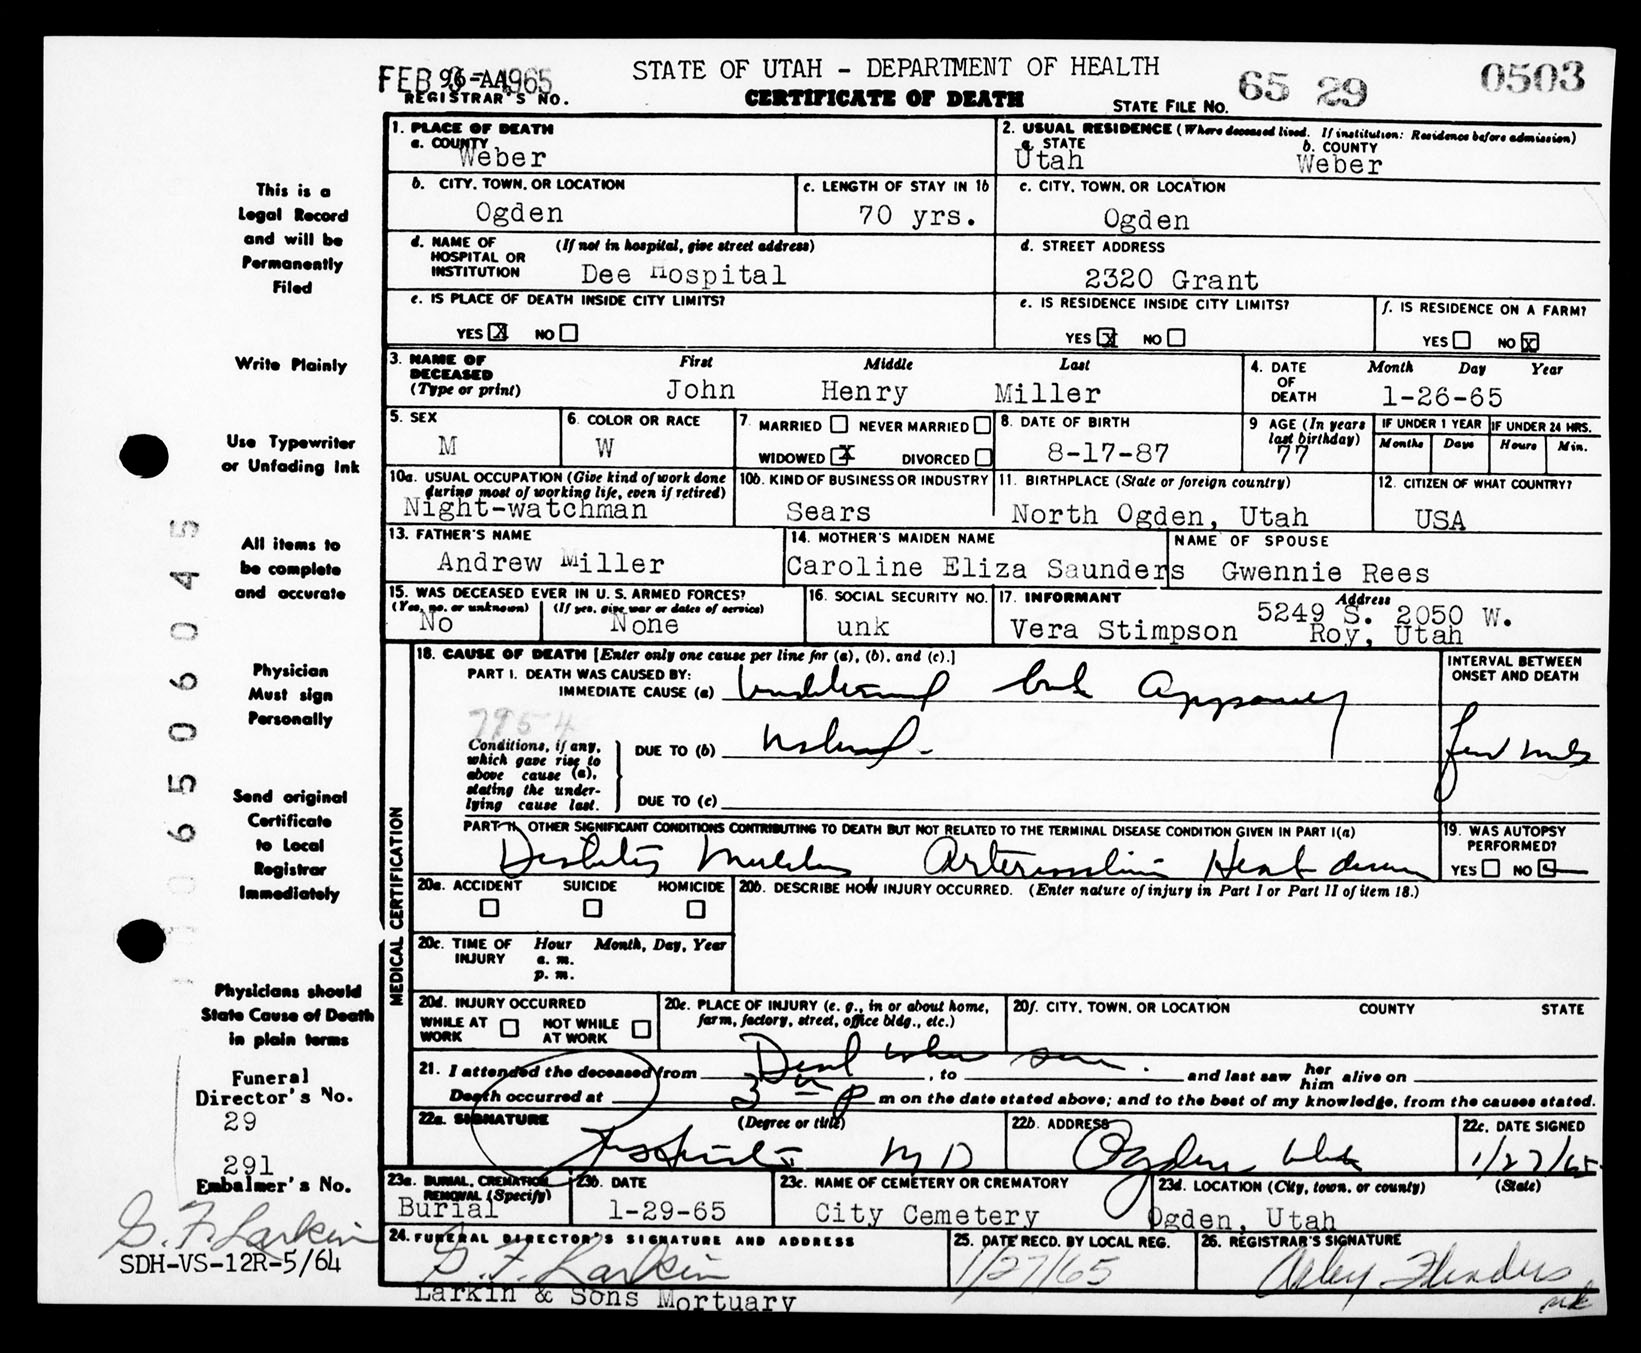 STATE OF UTAH - DEPARTMENT OF HEALTH
FEB 3 1965 96-A
REGISTRAR'S NO.
CERTIFICATE OF DEATH
STATE FILE NO. 65 29 0503
1. PLACE OF DEATH
a. COUNTY
Weber
2. USUAL RESIDENCE (Where deceased lived. If institution: Residence before admission)
a. STATE
Utah
b. COUNTY
Weber
b. CITY, TOWN, OR LOCATION
Ogden
c. LENGTH OF STAY IN 1b
70 yrs.
c. CITY, TOWN, OR LOCATION
Ogden
d. NAME OF HOSPITAL OR INSTITUTION (If not in hospital, give street address)
Dee Hospital
d. STREET ADDRESS
2320 Grant
e. IS PLACE OF DEATH INSIDE CITY LIMITS?
YES X NO
e. IS RESIDENCE INSIDE CITY LIMITS?
YES X NO
f. IS RESIDENCE ON A FARM?
YES NO X
3. NAME OF DECEASED (Type or print)
First Middle Last
John Henry Miller
4. DATE OF DEATH
Month Day Year
1-26-65
5. SEX
M
6. COLOR OR RACE
W
7. MARRIED NEVER MARRIED
WIDOWED X DIVORCED
8. DATE OF BIRTH
8-17-87
9 AGE (In years last birthday)
77
IF UNDER 1 YEAR
Months Days
IF UNDER 24 HRS.
Hours Min.
10a. USUAL OCCUPATION (Give kind of work done during most of working life, even if retired)
Night-watchman
10b. KIND OF BUSINESS OR INDUSTRY
Sears
11. BIRTHPLACE (State or foreign country)
North Ogden, Utah
12. CITIZEN OF WHAT COUNTRY?
USA
13. FATHER'S NAME
Andrew Miller
14. MOTHER'S MAIDEN NAME
Caroline Eliza Saunders
NAME OF SPOUSE
Gwennie Rees
15. WAS DECEASED EVER IN U. S. ARMED FORCES?
(Yes, no, or unknown) (If yes, give war or dates of service)
No None
16. SOCIAL SECURITY NO.
unk
17. INFORMANT Address
Vera Stimpson 5249 S. 2050 W.
Roy, Utah
MEDICAL CERTIFICATION
18. CAUSE OF DEATH [Enter only one cause per line for (a), (b), and (c).]
PART I. DEATH WAS CAUSED BY:
IMMEDIATE CAUSE (a)
7954
Conditions, if any, which gave rise to above cause (a), stating the underlying cause last.
DUE TO (b) Natural.
DUE TO (c)
INTERVAL BETWEEN ONSET AND DEATH
few
PART II. OTHER SIGNIFICANT CONDITIONS CONTRIBUTING TO DEATH BUT NOT RELATED TO THE TERMINAL DISEASE CONDITION GIVEN IN PART I(a)
Diabetes Mellitus Heart disease
19. WAS AUTOPSY PERFORMED?
YES NO
20a. ACCIDENT SUICIDE HOMICIDE
20b. DESCRIBE HOW INJURY OCCURRED. (Enter nature of injury in Part I or Part II of item 18.)
20c. TIME OF INJURY Hour Month, Day, Year
a. m.
p. m.
20d. INJURY OCCURRED
WHILE AT WORK NOT WHILE AT WORK
20e. PLACE OF INJURY (e. g., in or about home, farm, factory, street, office bldg., etc.)
20f. CITY, TOWN, OR LOCATION COUNTY STATE
21. I attended the deceased from Dead when seen. , to and last saw her him alive on
Death occurred at m on the date stated above; and to the best of my knowledge, from the causes stated.
22a. SIGNATURE (Degree or title)
M D
22b. ADDRESS
Ogden Utah
22c. DATE SIGNED
1/27/65
23a. BURIAL, CREMATION, REMOVAL (Specify)
Burial
23b. DATE
1-29-65
23c. NAME OF CEMETERY OR CREMATORY
City Cemetery
23d. LOCATION (City, town, or county) (State)
Ogden, Utah
24. FUNERAL DIRECTOR'S SIGNATURE AND ADDRESS
G. F. Larkin
Larkin & Sons Mortuary
25. DATE RECD. BY LOCAL REG.
1/27/65
26. REGISTRAR'S SIGNATURE
This is a
Legal Record
and will be
Permanently
Filed
Write Plainly
Use Typewriter
or Unfading Ink
All items to
be complete
and accurate
Physician
Must sign
Personally
Send original
Certificate
to Local
Registrar
Immediately
Physicians should
State Cause of Death
in plain terms
Funeral
Director's No.
29
291
Embalmer's No.
G. F. Larkin
SDH-VS-12R-5/64